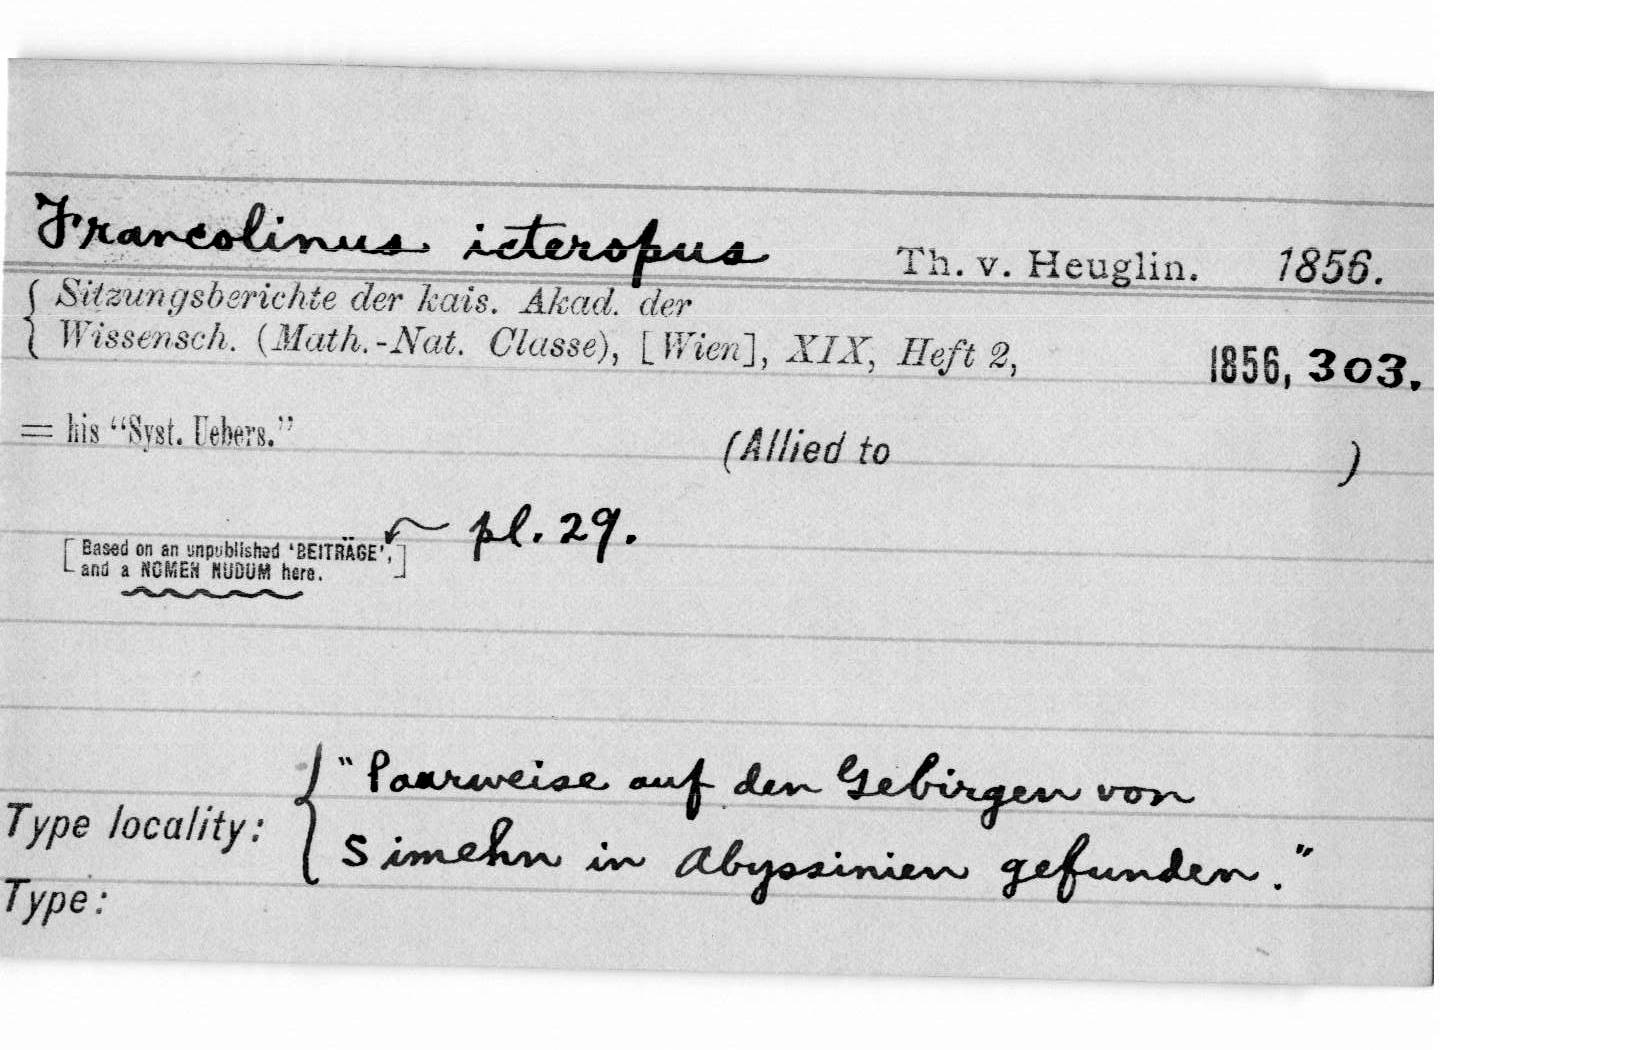 Francolinus icteropus Th. v. Heuglin. 1856.
Sitzungsberichte der kais. Akad. der
Wissensch. (Math.-Nat. Classe), [Wien], XIX, Heft 2, 1856, 303.
= his “Syst. Uebers.” (Allied to )
pl. 29.
[Based on an unpublished ‘BEITRÄGE’,
and a NOMEN NUDUM here.]
" Paarweise auf den Gebirgen von
Type locality: Simehn in Abyssinien gefunden."
Type: